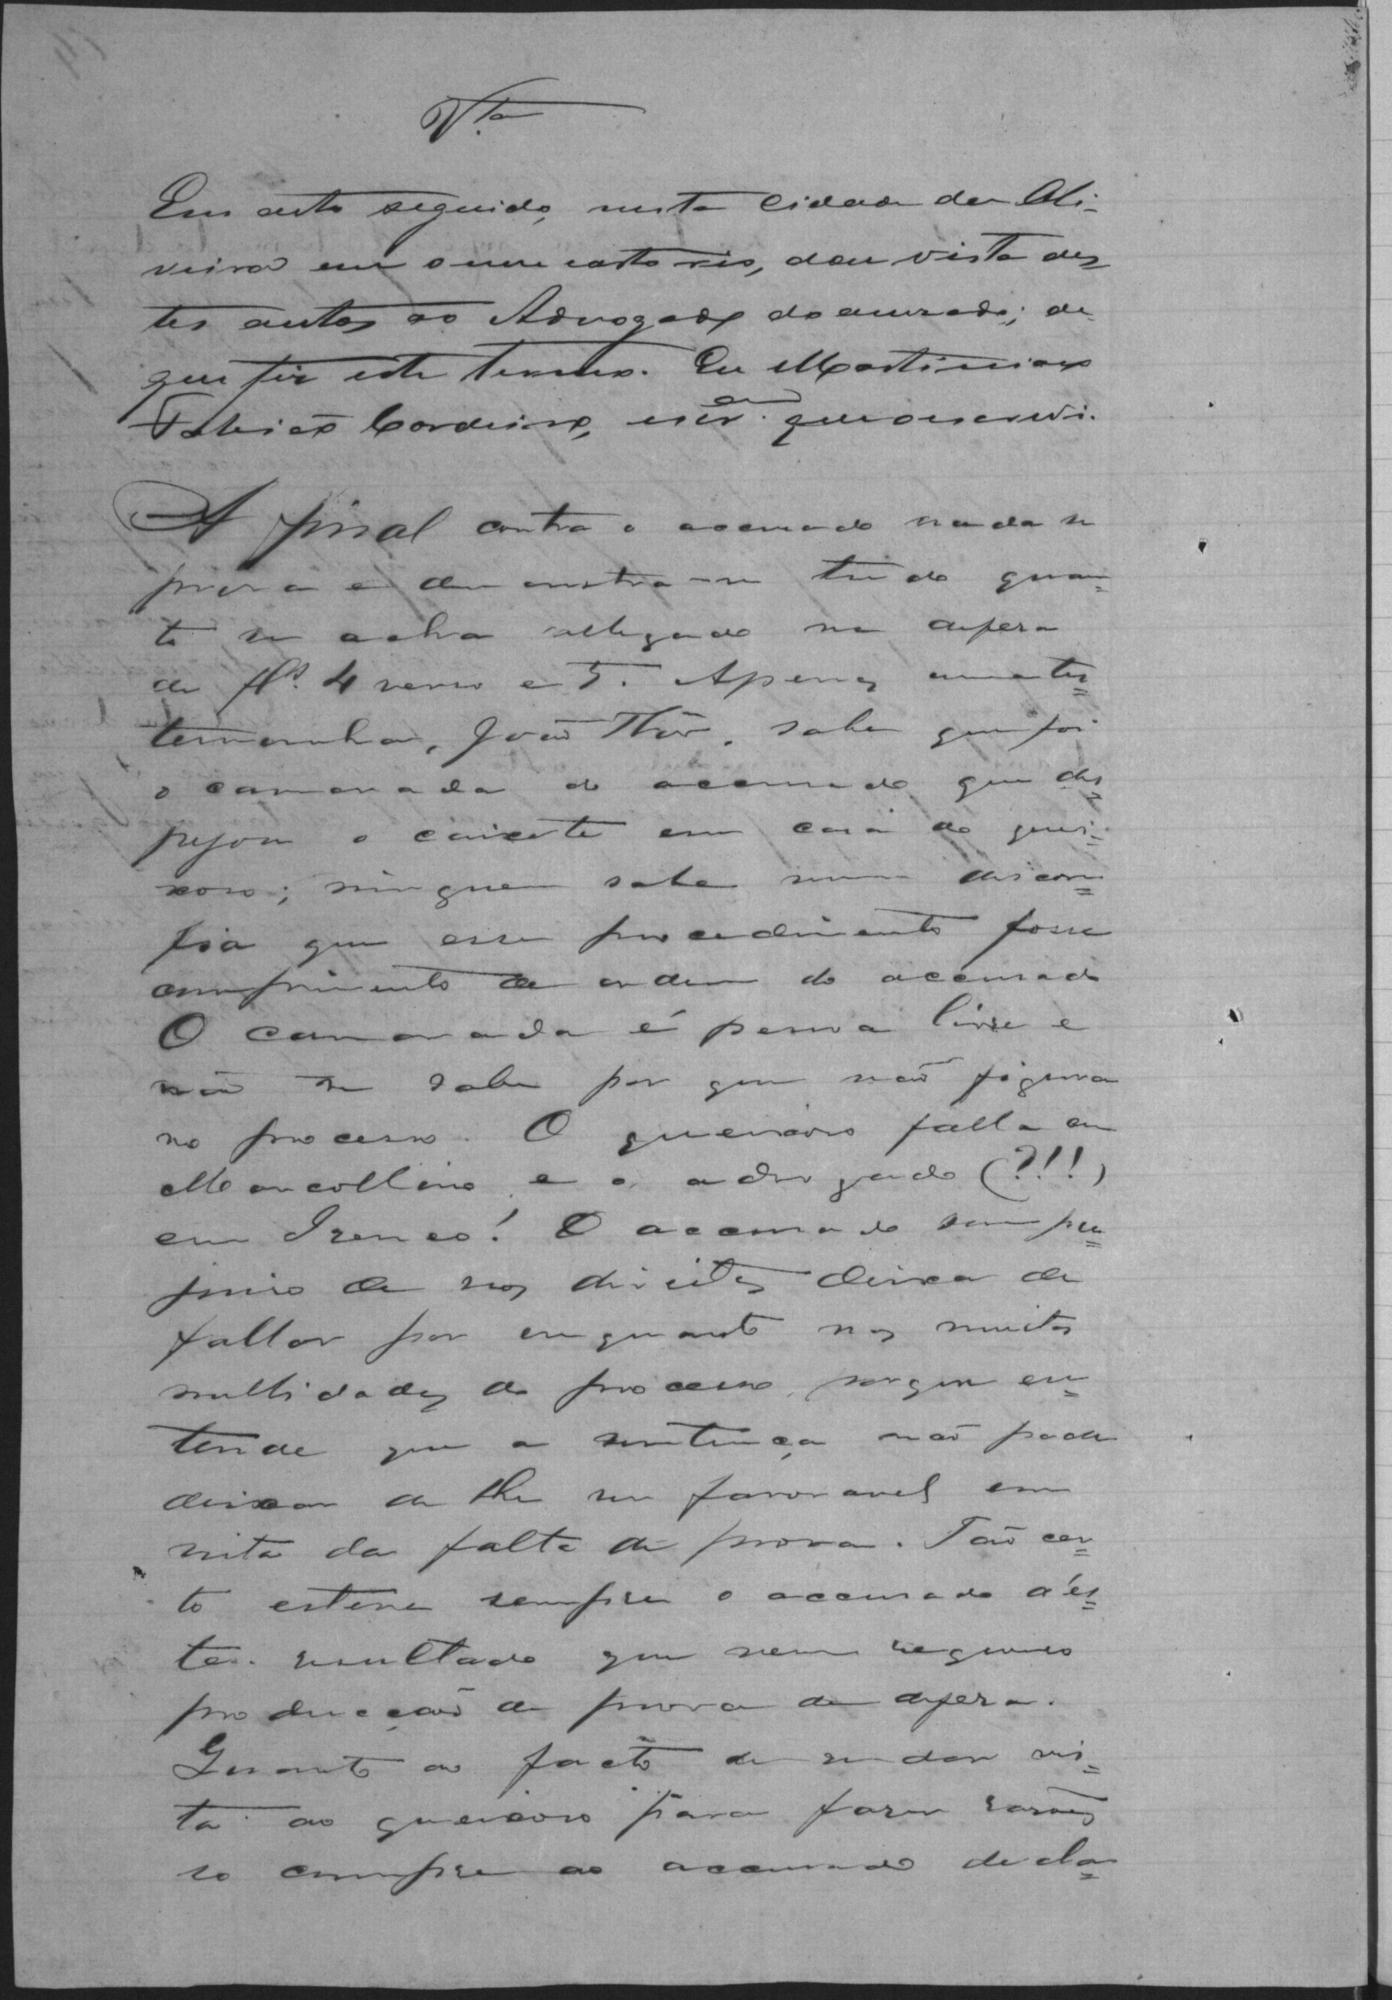 V.ta
Em acto seguido, nesta cidade de Oli-
veira em o meu cartorio, dou vista des
tes autos ao Advogado do accusado; do
que fiz este termo. Eu Martiniano
Cordeiro, escr.am que o escrevi.
A final contra o accusado nada se
prova e demonstra-se tudo quan=
to se acha allegado na defesa
de fls. 4 verso e 5. Apenas uma tes=
temunha, João, sabe que foi
o camarada do accusado que des=
pejou o caixote em casa do quei=
xoso; ninguem sabe nem descon=
fia que esse procedimento fosse
cumprimento de ordem do accusado
O camarada é pessoa livre e
não se sabe por que não figura
no processo. O queixoso falla em
Marcollino e o advogado (?!!!)
em Ireneo! O accusado sem pre=
juiso de seos direitos deixa de
fallar por enquanto nas muitas
nullidades do processo, porque en=
tende que a sentença não pode
deixar de lhe ser favoravel em
vista da falta de prova. Tão cer=
to esteve sempre o accusado d'es=
te resultado que nem requereo
producção de prova de defesa.
Quanto ao facto de se dar vis=
ta ao queixoso para fazer rasões
so cumpre ao accusado decla=